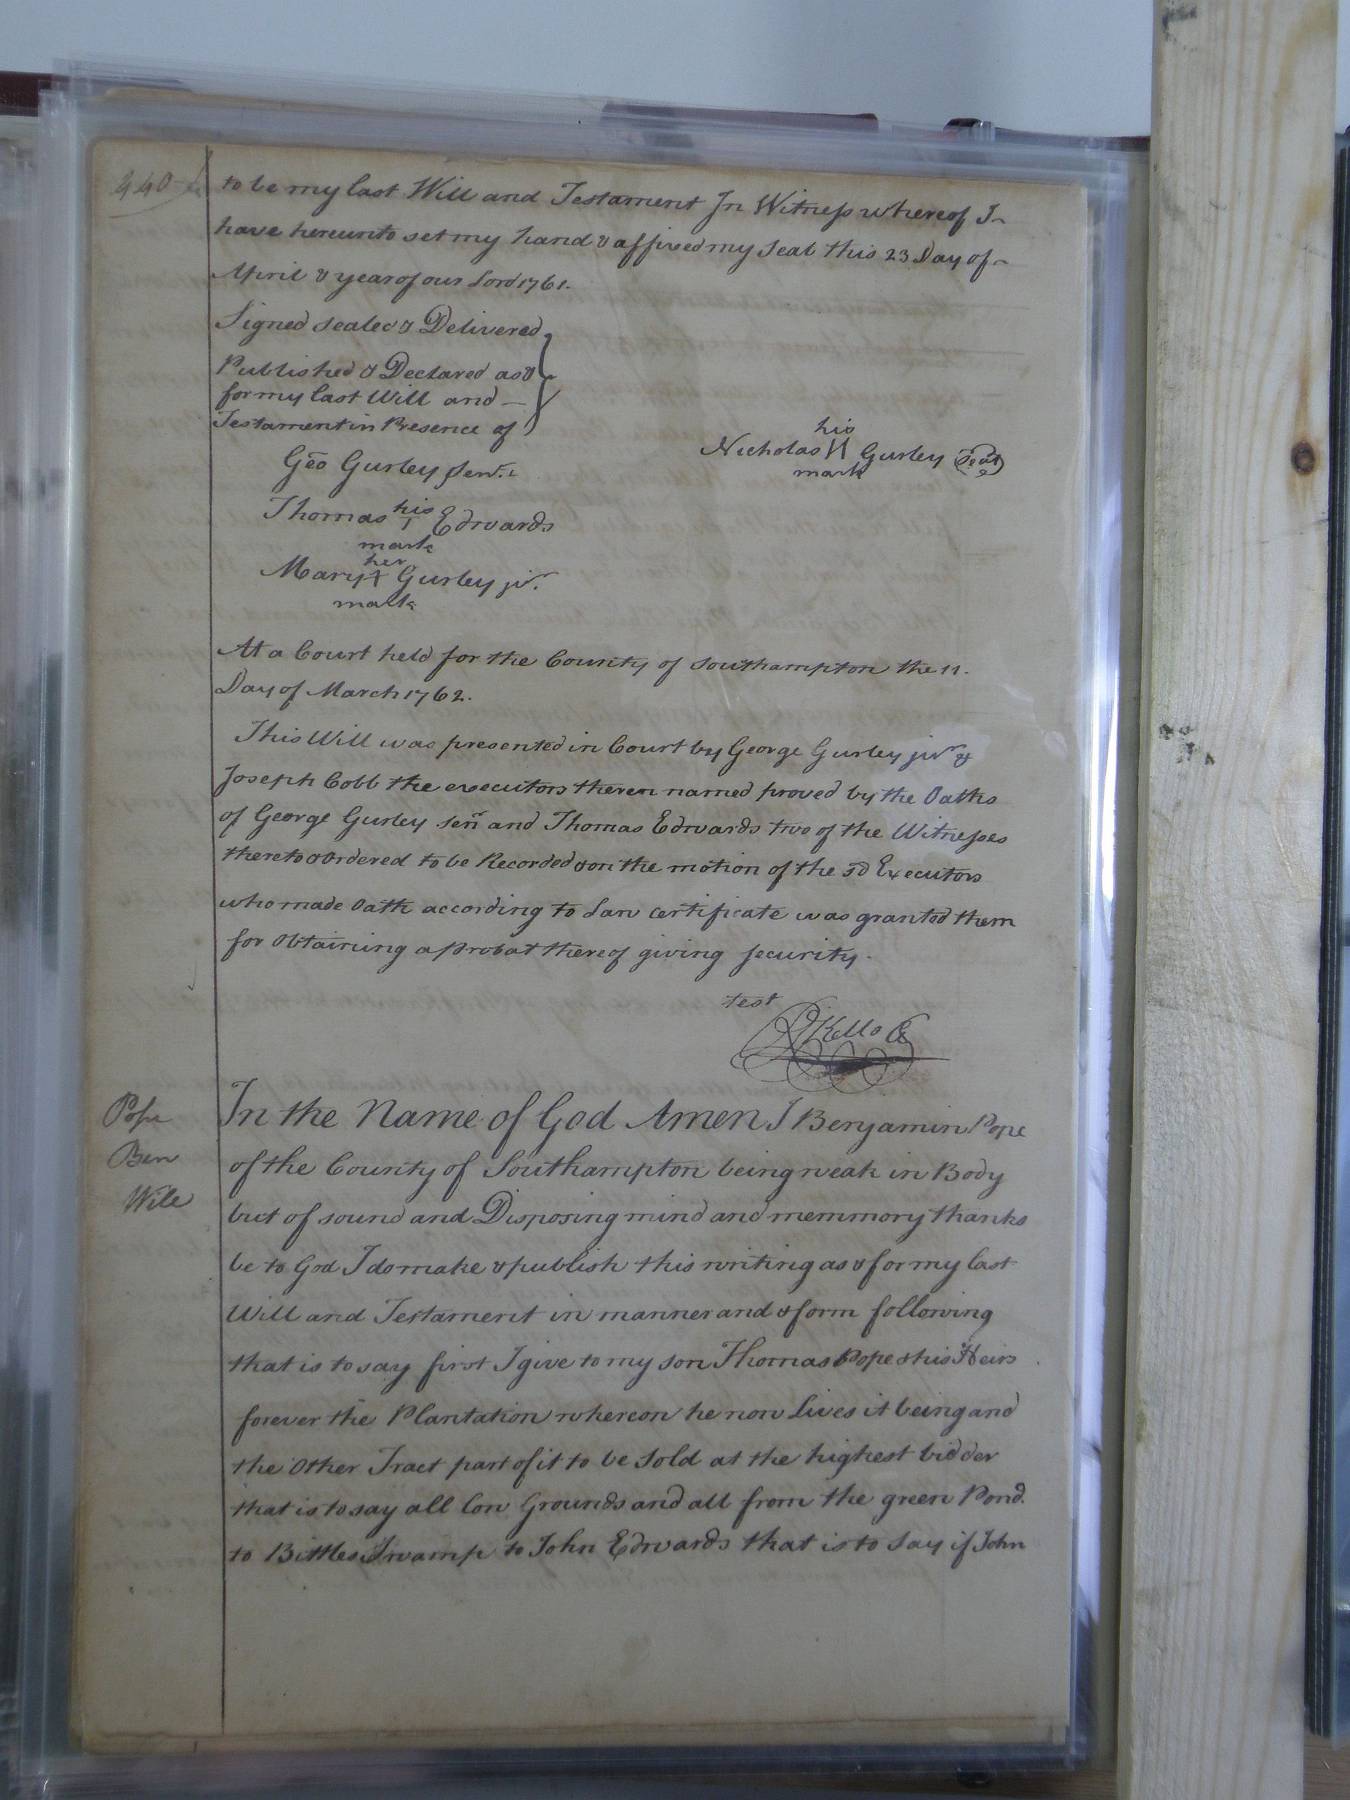 440
to be my last Will and Testament In Witness whereof I
have hereunto set my hand & affixed my Seal this 23 Day of
April & year of our Lord 1761.
Signed sealed & Delivered
Published & Declared as &
for my last Will and
Testament in Presence of
his
Nicholas H Gurley (Seal)
mark
Geo Gurley Senr.
his
Thomas I Edwards
mark
her
Mary + Gurley jur.
mark
At a Court held for the County of Southampton the 11.
Day of March 1762.
This Will was presented in Court by George Gurley junr &
Joseph Cobb the executors therein named proved by the Oaths
of George Gurley senr and Thomas Edwards two of the Witnesses
thereto & Ordered to be Recorded & on the motion of the sd Executors
who made Oath according to Law certificate was granted them
for Obtaining a probat thereof giving security.
test
R Kello C
Pope
Ben
Will
In the Name of God Amen I Benjamin Pope
of the County of Southampton being weak in Body
but of sound and Disposing mind and memmory thanks
be to God I do make & publish this writing as & for my last
Will and Testament in manner and & form following
that is to say first I give to my son Thomas Pope & his Heirs
forever the Plantation whereon he now Lives it being and
the Other Tract part of it to be Sold at the highest bidder
that is to say all Low Grounds and all from the green Pond
to Bittles Swamp to John Edwards that is to Say if John